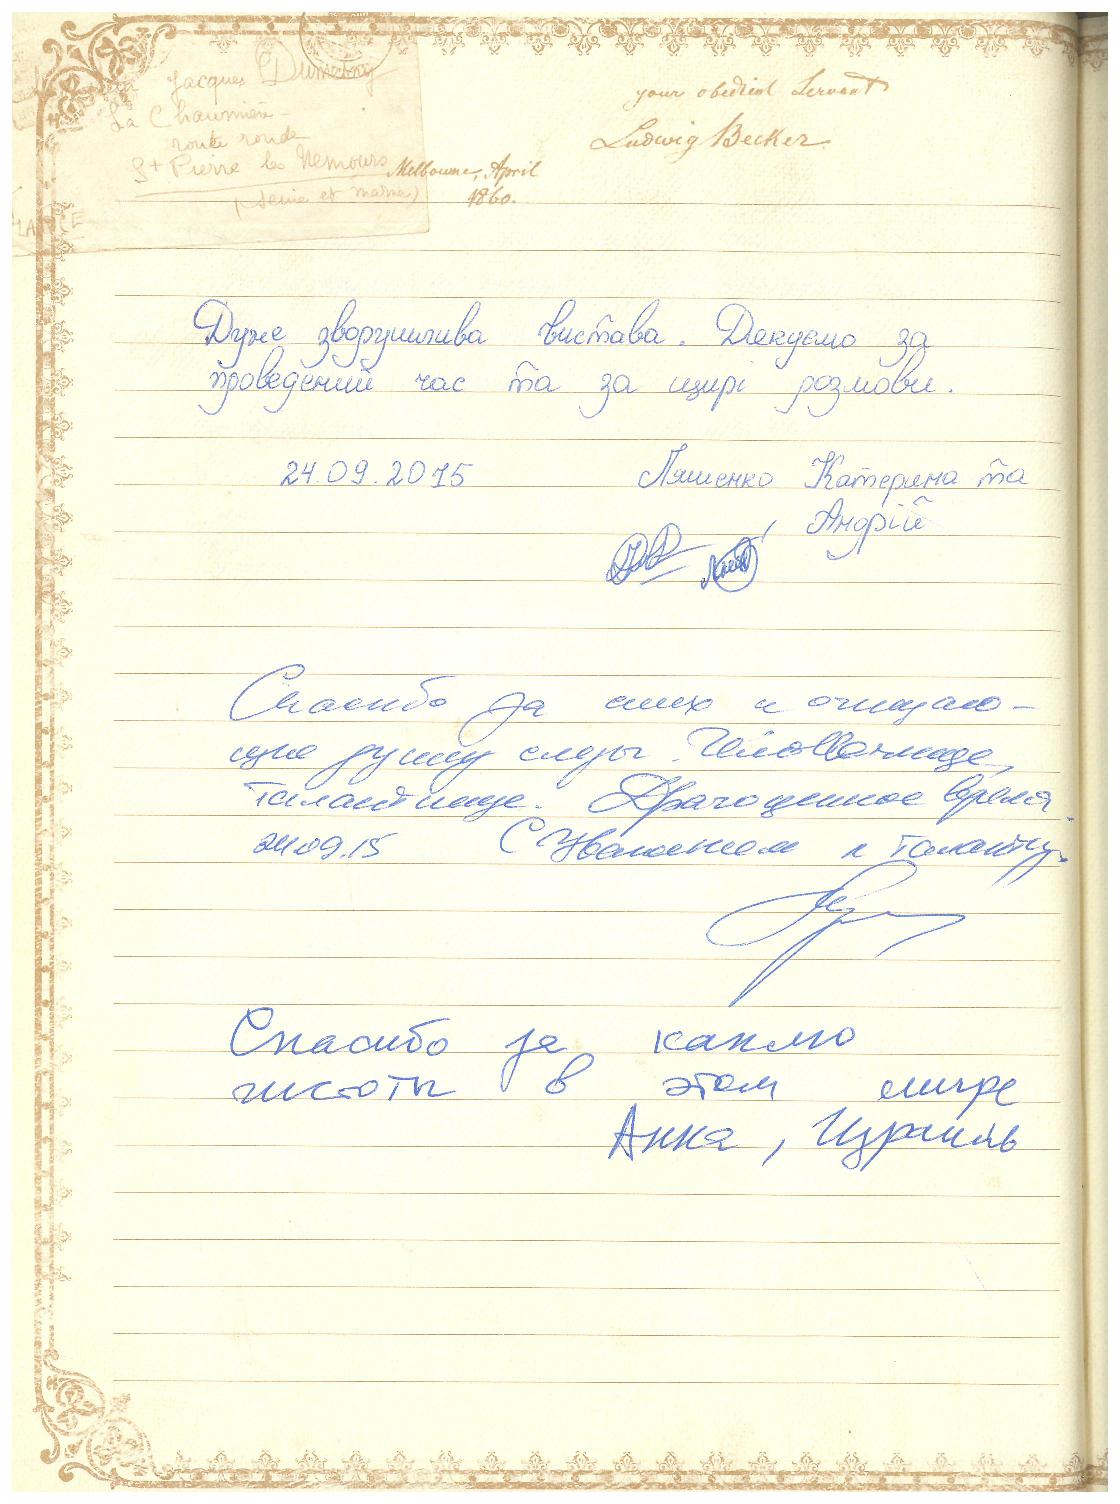 Jacques Dumesny
La Chaumière -
route ronde
St Pierre les Nemours
(Seine et Marne)
your obedient Servant
Ludwig Becker.
Melbourne, April
1860.
Дуже зворушлива вистава. Дякуємо за
проведений час та за щирі розмови.
24.09.2015 Ляшенко Катерина та
Андрій
Спасибо за смех и очищаю-
щие душу слезы. Человечище,
талантище. Драгоценное время.
24.09.15 С Уважением к таланту.
Спасибо за каплю
чистоты в этом мире
Анна, Израиль